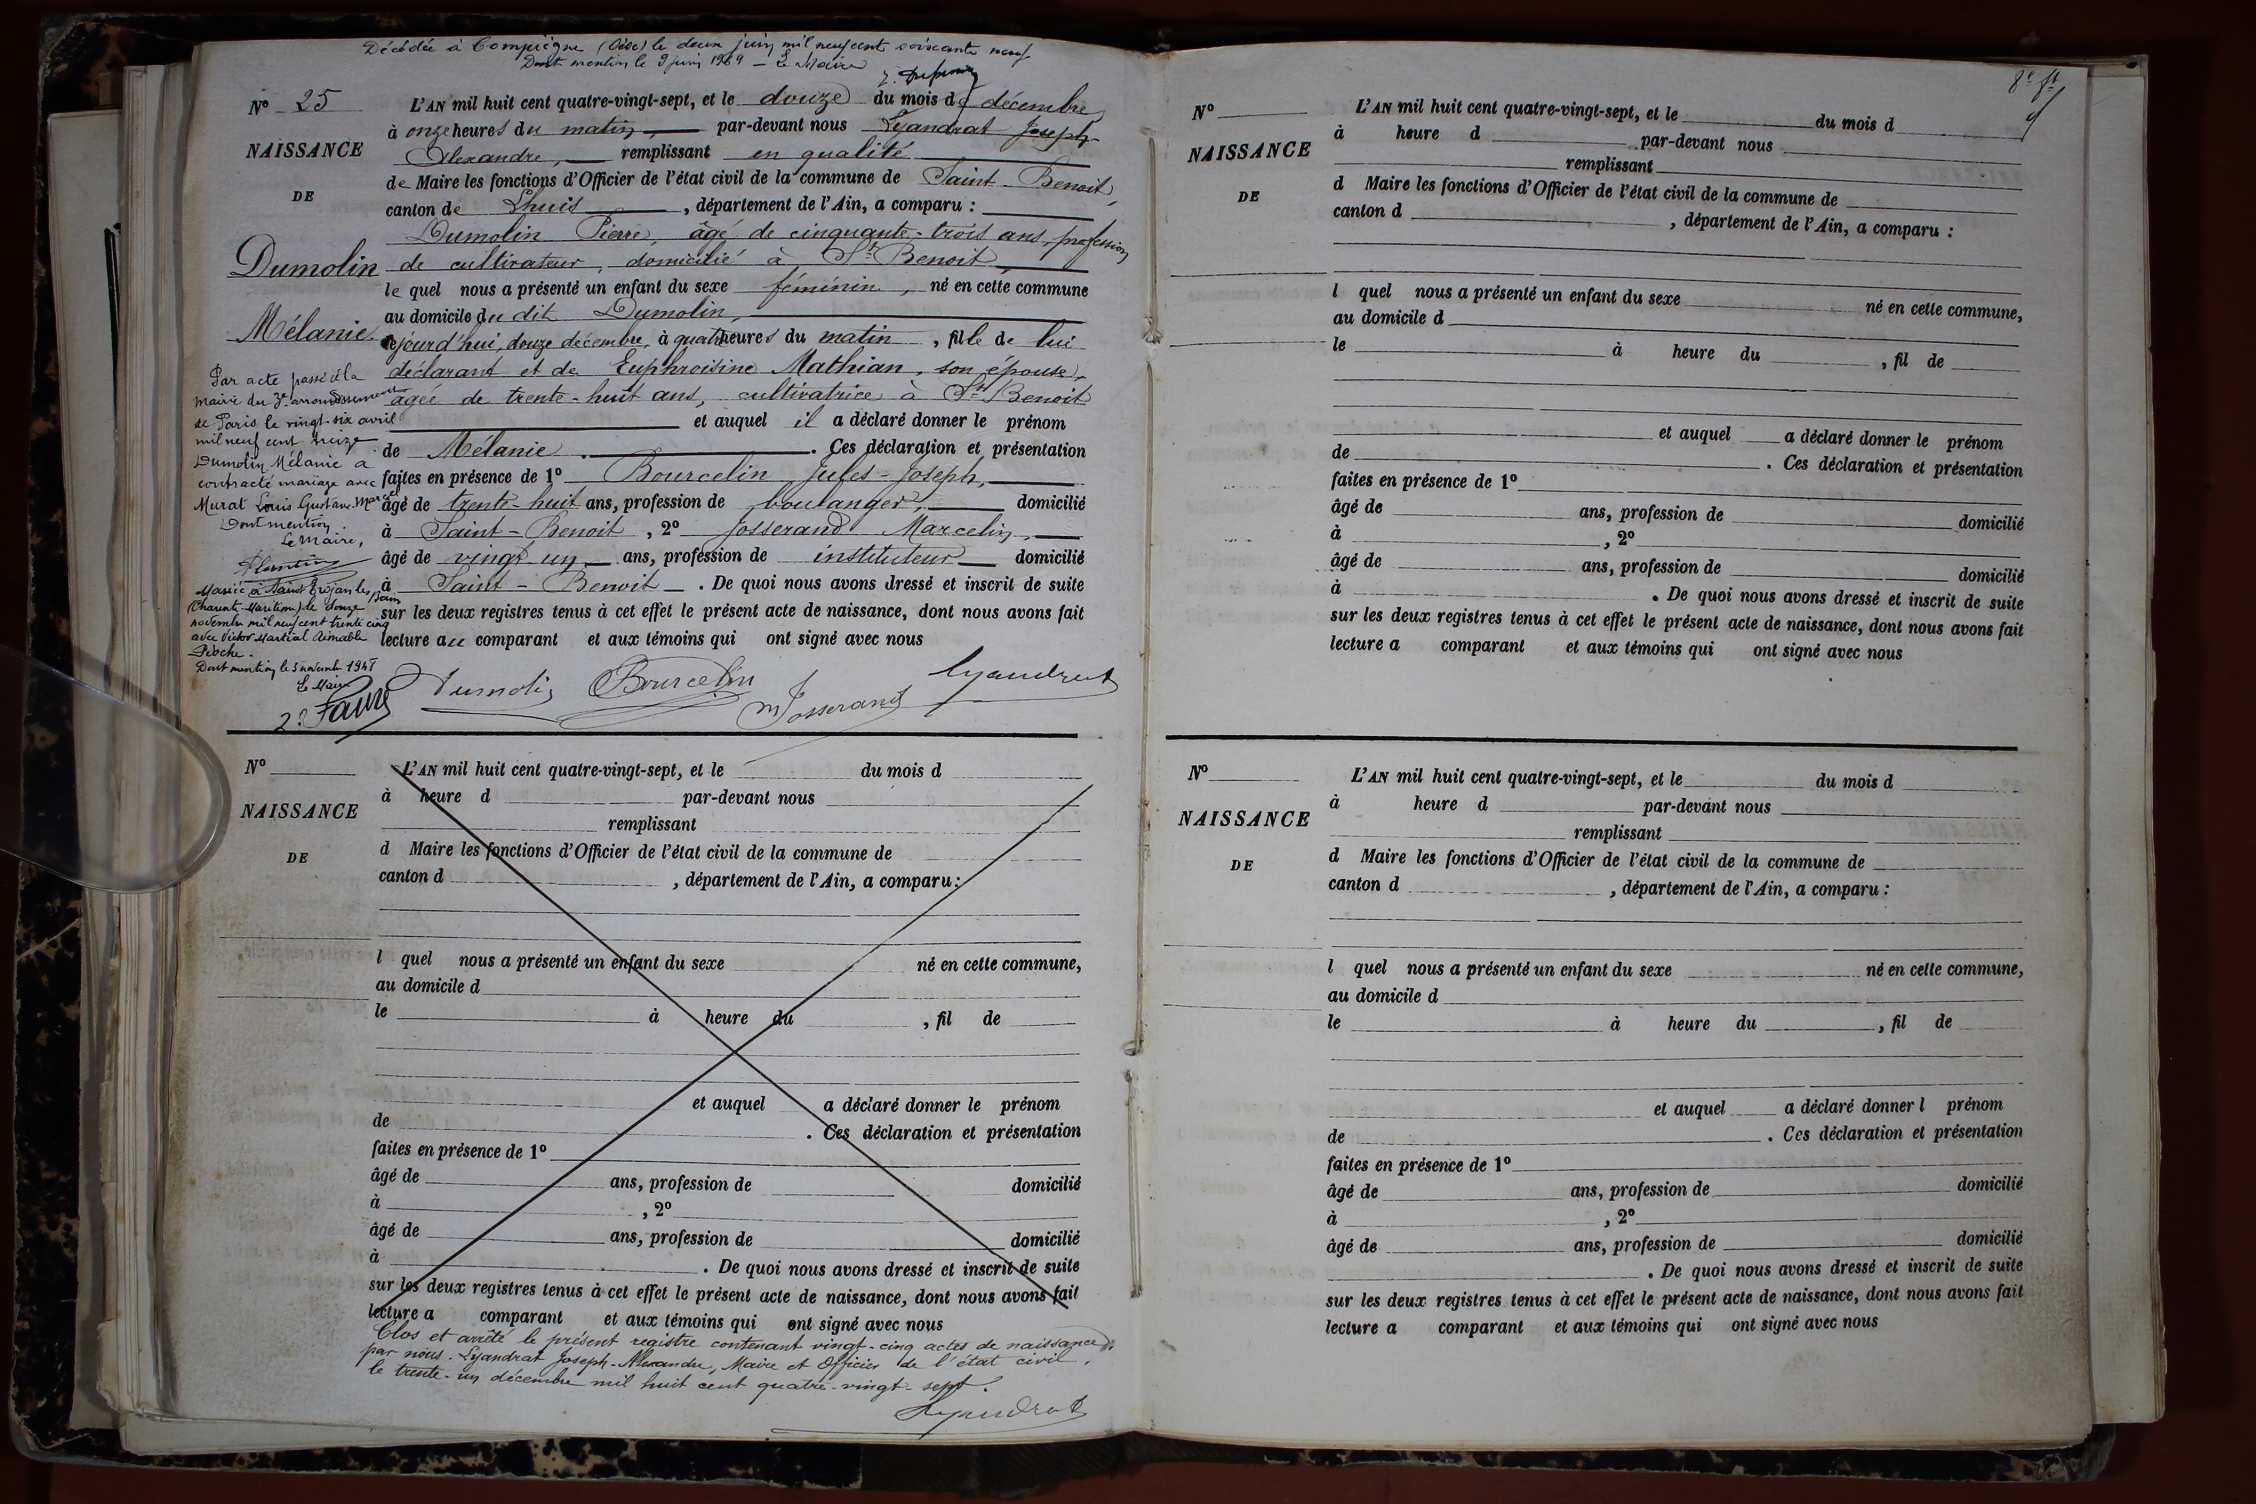 Décédée à Compiègne (Oise) le deux juin mil neuf cent soixante neuf
Dont mention le 9 juin 1969 - Le Maire
N° 25
NAISSANCE
DE
Dumolin
Mélanie
L'AN mil huit cent quatre-vingt-sept, et le douze du mois de décembre
à onze heures du matin, par-devant nous Lyandrat Joseph-
Alexandre, remplissant en qualité
de Maire les fonctions d'Officier de l'état civil de la commune de Saint-Benoit,
canton de Lhuis, département de l'Ain, a comparu :
Dumolin Pierre, âgé de cinquante-trois ans, profession
de cultivateur, domicilié à St Benoit,
lequel nous a présenté un enfant du sexe féminin, né en cette commune
au domicile du dit Dumolin,
lejourd'hui, douze décembre, à quatre heures du matin, fille de lui
déclarant et de Euphroisine Mathian, son épouse,
âgée de trente-huit ans, cultivatrice à St Benoit
et auquel il a déclaré donner le prénom
de Mélanie. Ces déclaration et présentation
faites en présence de 1° Bourcelin Jules-Joseph,
âgé de trente-huit ans, profession de boulanger, domicilié
à Saint-Benoit, 2° Josserand Marcelin,
âgé de vingt-un ans, profession de instituteur domicilié
à Saint-Benoit. De quoi nous avons dressé et inscrit de suite
sur les deux registres tenus à cet effet le présent acte de naissance, dont nous avons fait
lecture au comparant et aux témoins qui ont signé avec nous
Dumolin Bourcelin M Josserand Lyandrat
Par acte passé à la
mairie du 3e arrondissement
de Paris le vingt-six avril
mil neuf cent treize
Dumolin Mélanie a
contracté mariage avec
Murat Louis Gustave Marcel
Dont mention
Le Maire,
Mariée à Saint Trojan les Bains
(Charente-Maritime) le douze
novembre mil neuf cent trente cinq
avec Victor Martial Aimable
Pioche.
Dont mention le 5 novemb 1941
Le Maire
Faure
N°
NAISSANCE
DE
L'AN mil huit cent quatre-vingt-sept, et le du mois d
à heure d par-devant nous
remplissant
d Maire les fonctions d'Officier de l'état civil de la commune de
canton d , département de l'Ain, a comparu :
l quel nous a présenté un enfant du sexe né en cette commune,
au domicile d
le à heure du , fil de
et auquel a déclaré donner le prénom
de . Ces déclaration et présentation
faites en présence de 1°
âgé de ans, profession de domicilié
à , 2°
âgé de ans, profession de domicilié
à . De quoi nous avons dressé et inscrit de suite
sur les deux registres tenus à cet effet le présent acte de naissance, dont nous avons fait
lecture a comparant et aux témoins qui ont signé avec nous
Clos et arrêté le présent registre contenant vingt-cinq actes de naissance,
par nous, Lyandrat Joseph-Alexandre, Maire et Officier de l'état civil,
le trente-un décembre mil huit cent quatre-vingt-sept.
Lyandrat
N°
NAISSANCE
DE
L'AN mil huit cent quatre-vingt-sept, et le du mois d
à heure d par-devant nous
remplissant
d Maire les fonctions d'Officier de l'état civil de la commune de
canton d , département de l'Ain, a comparu :
l quel nous a présenté un enfant du sexe né en cette commune,
au domicile d
le à heure du , fil de
et auquel a déclaré donner le prénom
de . Ces déclaration et présentation
faites en présence de 1°
âgé de ans, profession de domicilié
à , 2°
âgé de ans, profession de domicilié
à . De quoi nous avons dressé et inscrit de suite
sur les deux registres tenus à cet effet le présent acte de naissance, dont nous avons fait
lecture a comparant et aux témoins qui ont signé avec nous
N°
NAISSANCE
DE
L'AN mil huit cent quatre-vingt-sept, et le du mois d
à heure d par-devant nous
remplissant
d Maire les fonctions d'Officier de l'état civil de la commune de
canton d , département de l'Ain, a comparu :
l quel nous a présenté un enfant du sexe né en cette commune,
au domicile d
le à heure du , fil de
et auquel a déclaré donner l prénom
de . Ces déclaration et présentation
faites en présence de 1°
âgé de ans, profession de domicilié
à , 2°
âgé de ans, profession de domicilié
. De quoi nous avons dressé et inscrit de suite
sur les deux registres tenus à cet effet le présent acte de naissance, dont nous avons fait
lecture a comparant et aux témoins qui ont signé avec nous